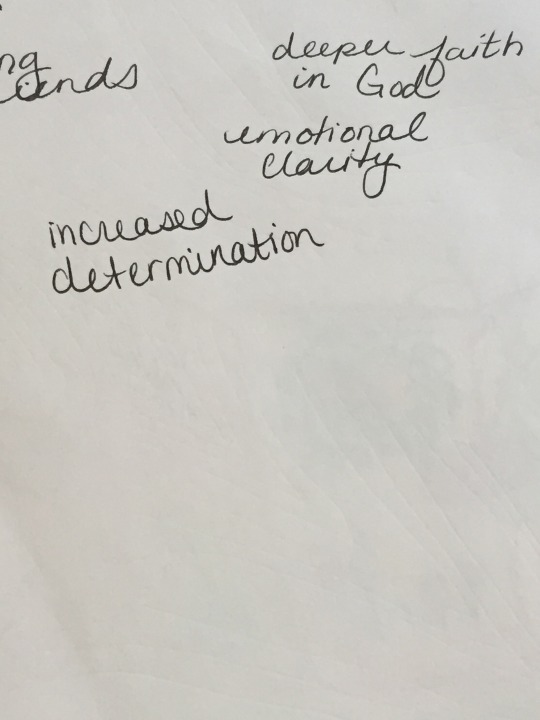 deeper faith
in God
emotional
clarity
increased
determination